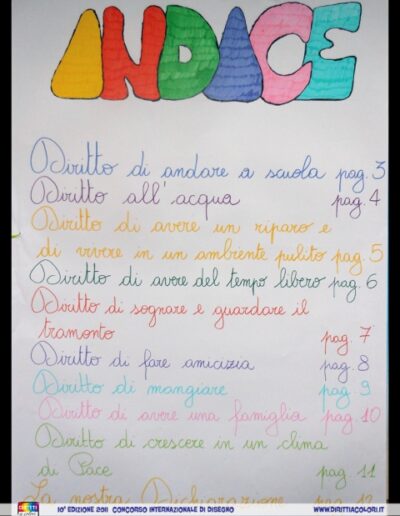 ANDACE
Diritto di andare a scuola pag. 3
Diritto all'acqua pag. 4
Diritto di avere un riparo e
di vivere in un ambiente pulito pag. 5
Diritto di avere del tempo libero pag. 6
Diritto di sognare e guardare il
tramonto pag. 7
Diritto di fare amicizia pag. 8
Diritto di mangiare pag. 9
Diritto di avere una famiglia pag. 10
Diritto di crescere in un clima
di Pace pag. 11
La nostra Dichiarazione pag. 12
10ª EDIZIONE 2011 CONCORSO INTERNAZIONALE DI DISEGNO WWW.DIRITTIACOLORI.IT